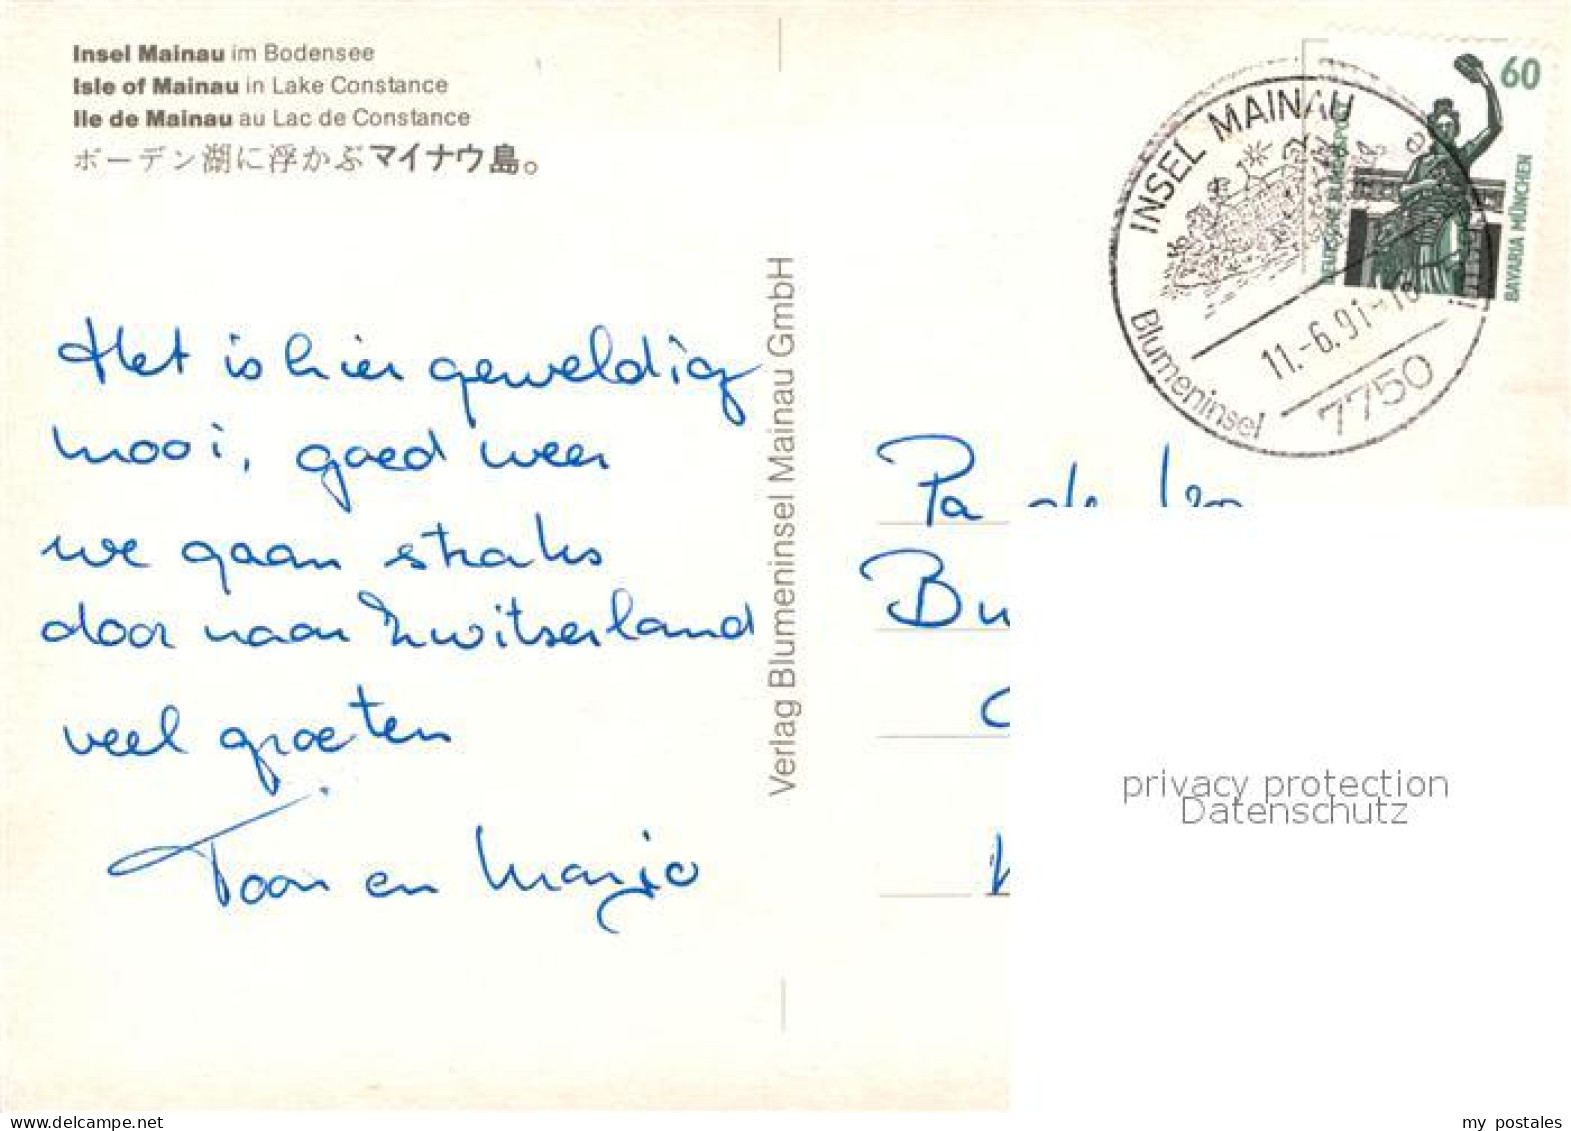 Insel Mainau im Bodensee
Isle of Mainau in Lake Constance
Ile de Mainau au Lac de Constance
ボーデン湖に浮かぶマイナウ島。
Het is hier geweldig
mooi, goed weer
we gaan straks
door naar Zwitserland
veel groeten
Toon en Marjo
Verlag Blumeninsel Mainau GmbH
INSEL MAINAU
Blumeninsel
11.-6.91-16
7750
60
DEUTSCHE BUNDESPOST
BAVARIA MÜNCHEN
Pa de
Bu
privacy protection
Datenschutz
my postales